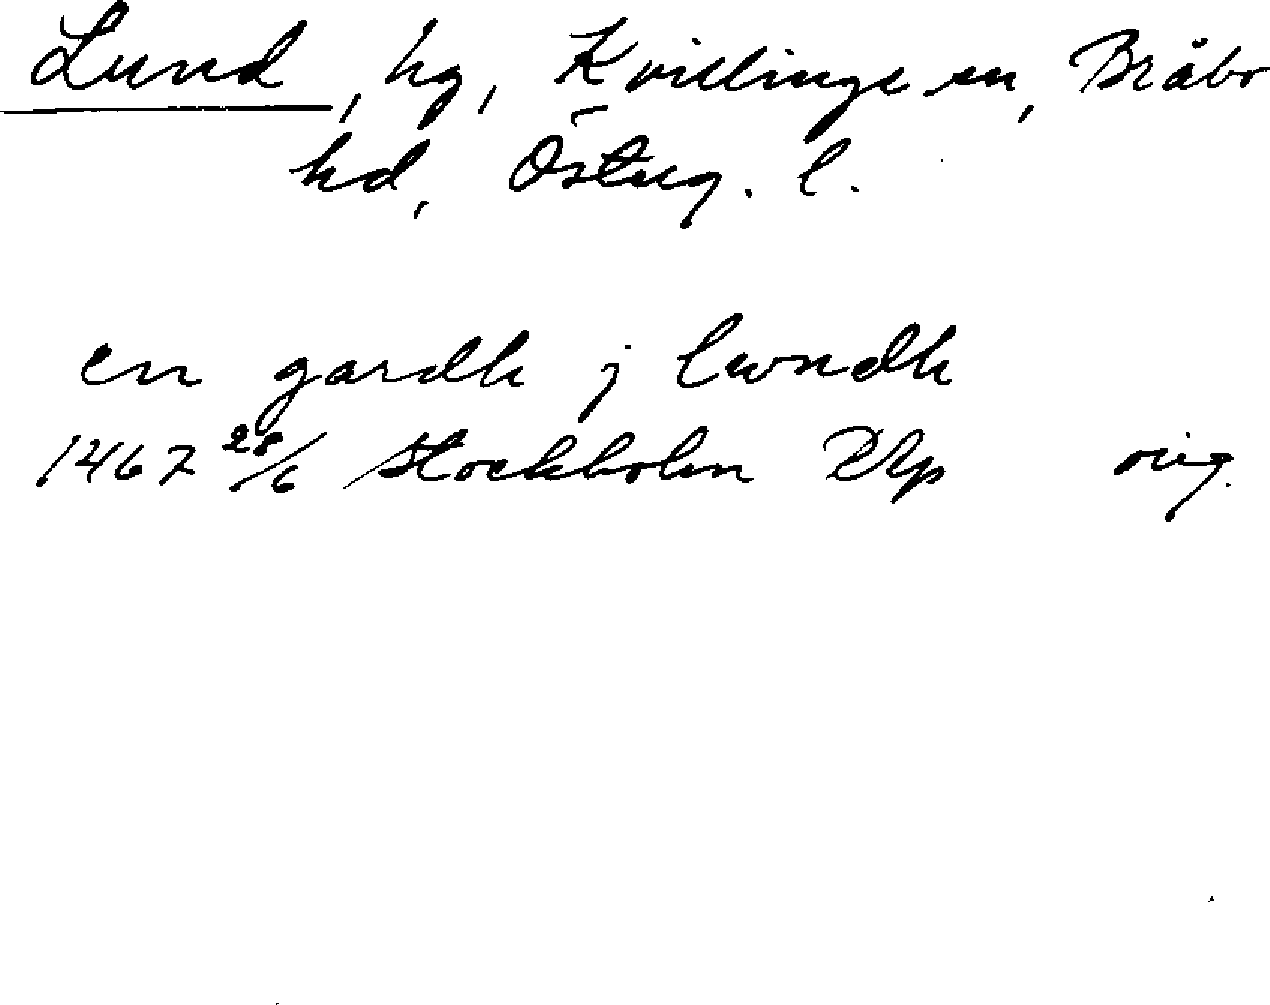 Lund, hg, Kvillinge sn, Bråbo
hd, Österg. l.
en gardh j lwndh
1467 28/6 Stockholm DRp orig.